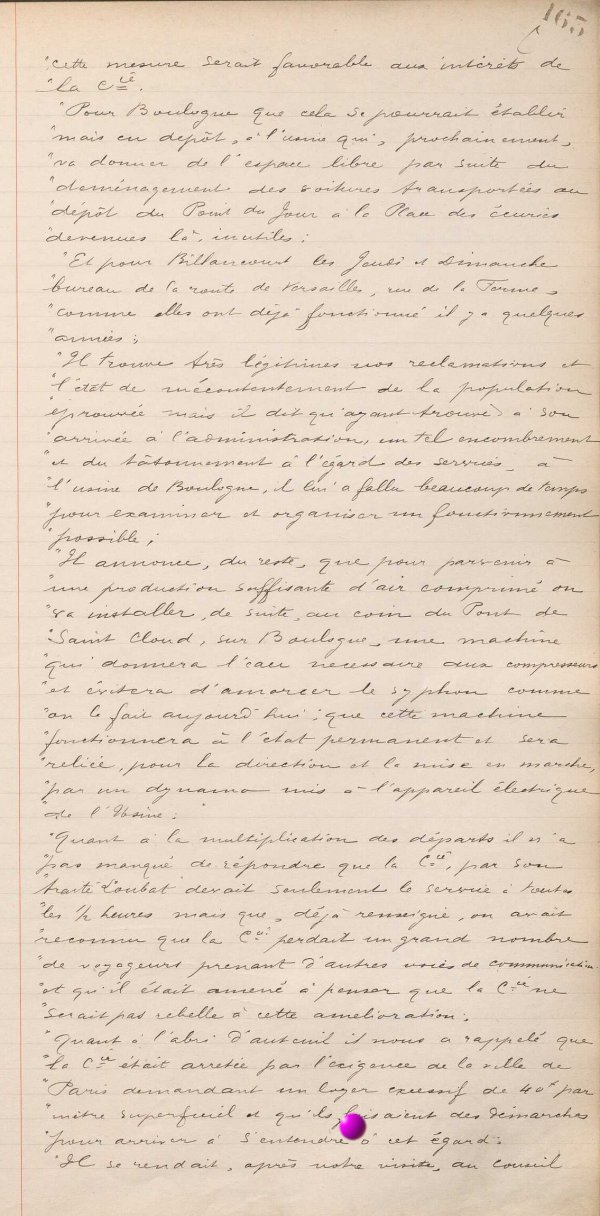 165
"cette mesure serait favorable aux intérêts de
"la Cie.
"Pour Boulogne que cela se pourrait établir
"mais en dépôt, à l'usine qui, prochainement,
"va donner de l'espace libre par suite du
"deménagement des voitures transportées au
"dépôt du Point du Jour à la Place des écuries
"devenues là, inutiles;
"Et pour Billancourt les Jeudi et Dimanche
"bureau de la route de Versailles, rue de la Ferme,
"comme elles ont déjà fonctionné il y a quelques
"années;
"Il trouve très légitimes nos reclamations et
"l'état de mécontentement de la population
"éprouvée mais il dit qu'ayant trouvé à son
"arrivée à l'administration, un tel encombrement
"et du tâtonnement à l'égard des services, à
"l'usine de Boulogne, il lui a fallu beaucoup de temps
"pour examiner et organiser un fonctionnement
"possible;
"Il annonce, du reste, que pour parvenir à
"une production suffisante d'air comprimé on
"va installer, de suite, au coin du Pont de
"Saint Cloud, sur Boulogne, une machine
"qui donnera l'eau necessaire aux compresseurs
"et évitera d'amorcer le syphon comme
"on le fait aujourd'hui; que cette machine
"fonctionnera à l'état permanent et sera
"reliée, pour la direction et la mise en marche,
"par un dynamo mis à l'appareil électrique
"de l'Usine;
"Quant à la multiplication des départs il n'a
"pas manqué de répondre que la Cie, par son
"traité Loubat devait seulement le service à toutes
"les 1/2 heures mais que, déjà renseigné, on avait
"reconnu que la Cie perdait un grand nombre
"de voyageurs prenant d'autres voies de communication
"et qu'il était amené à penser que la Cie ne
"serait pas rebelle à cette amelioration;
"Quant à l'abri d'auteuil il nous a rappelé que
"la Cie était arretée par l'exigence de la ville de
"Paris demandant un loyer excessif de 40f par
"mètre superficiel et qu'ils faisaient des démarches
"pour arriver à s'entendre à cet égard.
"Il se rendait, après notre visite, au conseil